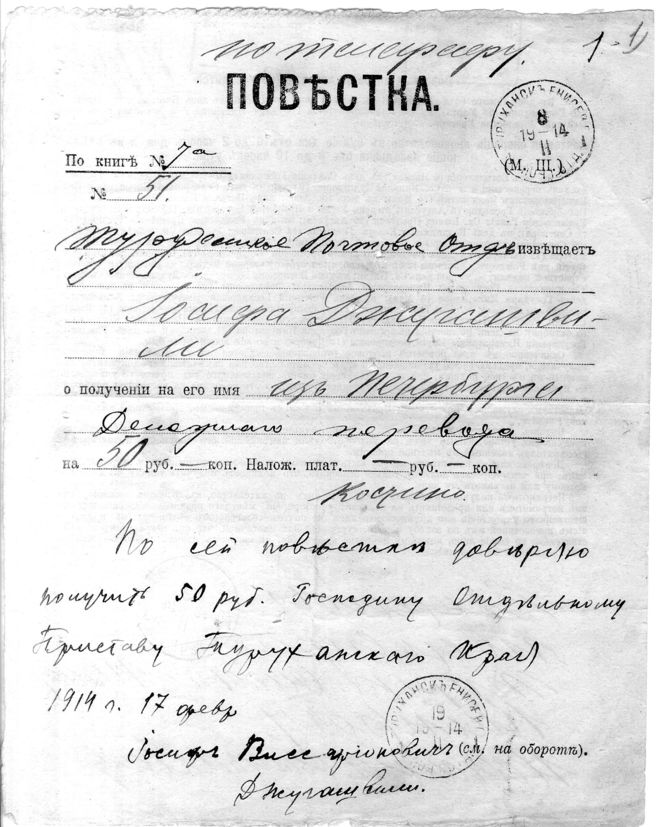 по телеграфу. 1-1
ПОВѢСТКА.
ТУРУХАНСКЪ ЕНИСЕЙ
8
19-14
II
(М. П.)
По книгѣ № 7а
№ 51.
Туруханское Почтовое Отдѣ извѣщаетъ
Іосифа Джугашви-
ли
о полученіи на его имя изъ Петербурга
Денежнаго перевода
на 50 руб. — коп. Налож. плат. — руб. — коп.
Костино.
По сей повѣстки довѣряю
получить 50 руб. Господину Отдѣльному
Приставу Туруханского Края
1914 г. 17 февр
ТУРУХАНСКЪ ЕНИСЕЙ
19
19-14
II
Іосифъ Виссаріоновичъ (см. на оборотѣ).
Джугашвили.